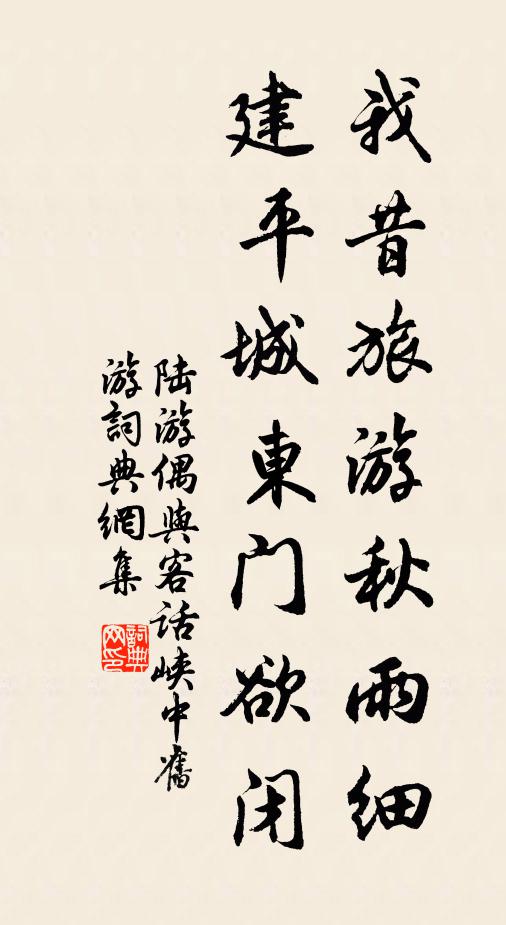 我昔旅游秋雨细
建平城東门欲闭
陆游偶與客话峡中舊
游詞典網集
詞典网印